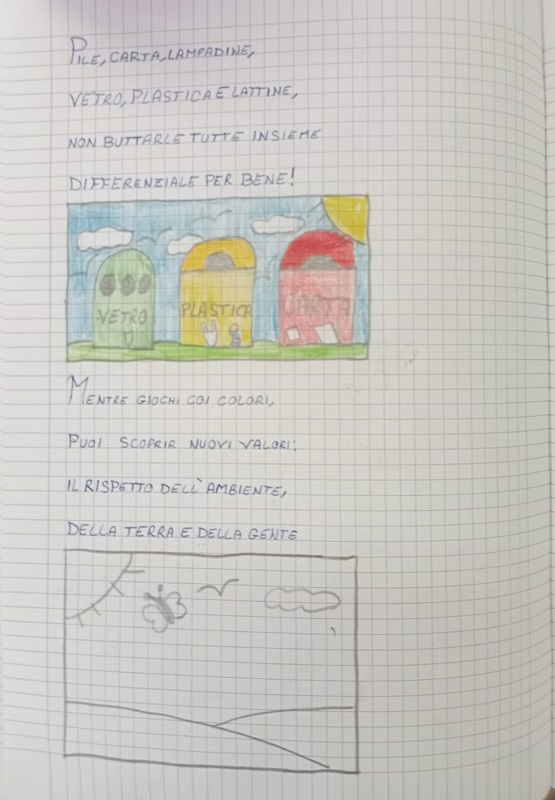 PILE, CARTA, LAMPADINE,
VETRO, PLASTICA E LATTINE,
NON BUTTARLE TUTTE INSIEME
DIFFERENZIALE PER BENE!
VETRO
PLASTICA
CARTA
MENTRE GIOCHI COI COLORI,
PUOI SCOPRIR NUOVI VALORI:
IL RISPETTO DELL'AMBIENTE,
DELLA TERRA E DELLA GENTE